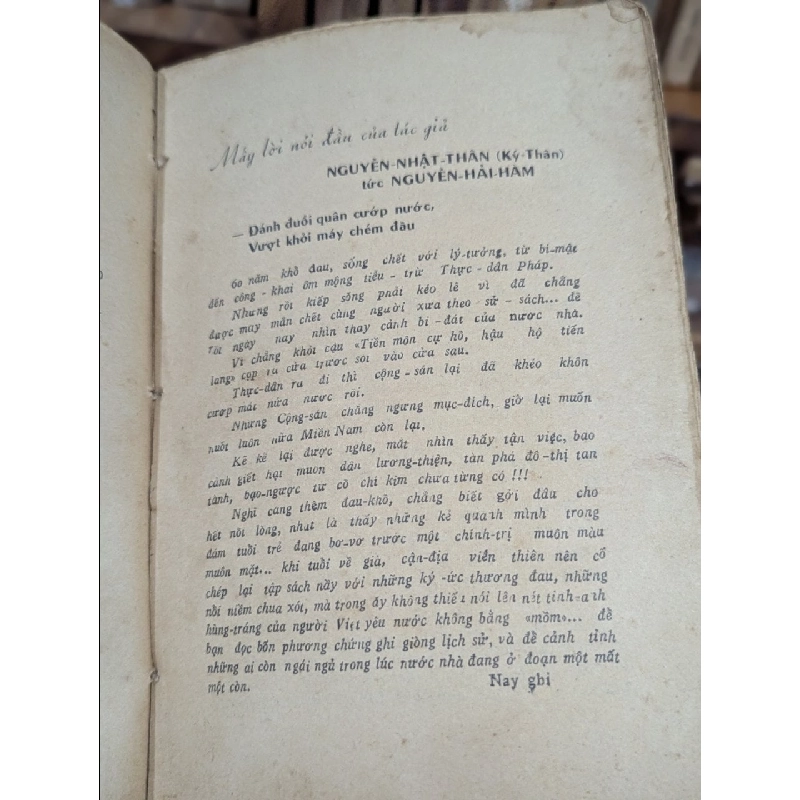 Mấy lời nói đầu của tác giả
NGUYỄN-NHẬT-THÂN (Ký-Thân)
tức NGUYỄN-HẢI-HÀM
— Đánh đuổi quân cướp nước,
Vượt khỏi máy chém đầu
60 năm khổ đau, sống chết với lý-tưởng, từ bí-mật
đến công-khai ôm mộng tiễu-trừ Thực-dân Pháp.
Nhưng rồi kiếp sống phải kéo lê vì đã chẳng
được may mắn chết cùng người xưa theo sử-sách... để
tới ngày nay nhìn thấy cảnh bi-đát của nước nhà.
Vì chẳng khỏi câu «Tiền môn cự hổ, hậu hộ tiến
lang» cọp ra cửa trước sói vào cửa sau.
Thực-dân ra đi thì cộng-sản lại đã khéo khôn
cướp mất nửa nước rồi.
Nhưng Cộng-sản chẳng ngưng mục-đích, giờ lại muốn
nuốt luôn nửa Miền Nam còn lại.
Kẻ kể lại được nghe, mắt nhìn thấy tận việc, bao
cảnh giết hại muôn dân lương-thiện, tàn phá đô-thị tan
tành, bạo-ngược từ cổ chí kim chưa từng có !!!
Nghĩ càng thêm đau-khổ, chẳng biết gởi đâu cho
hết nỗi lòng, nhất là thấy những kẻ quanh mình trong
đám tuổi trẻ đang bơ-vơ trước một chính-trị muôn màu
muôn mặt... khi tuổi về già, cận-địa viễn thiên nên cố
chép lại tập sách nầy với những ký-ức thương đau, những
nỗi niềm chua xót, mà trong ấy không thiếu nói lên nét tinh-anh
hùng-tráng của người Việt yêu nước không bằng «mồm»... để
bạn đọc bốn phương chứng ghi giòng lịch sử, và để cảnh tỉnh
những ai còn ngái ngủ trong lúc nước nhà đang ở đoạn một mất
một còn.
Nay ghi